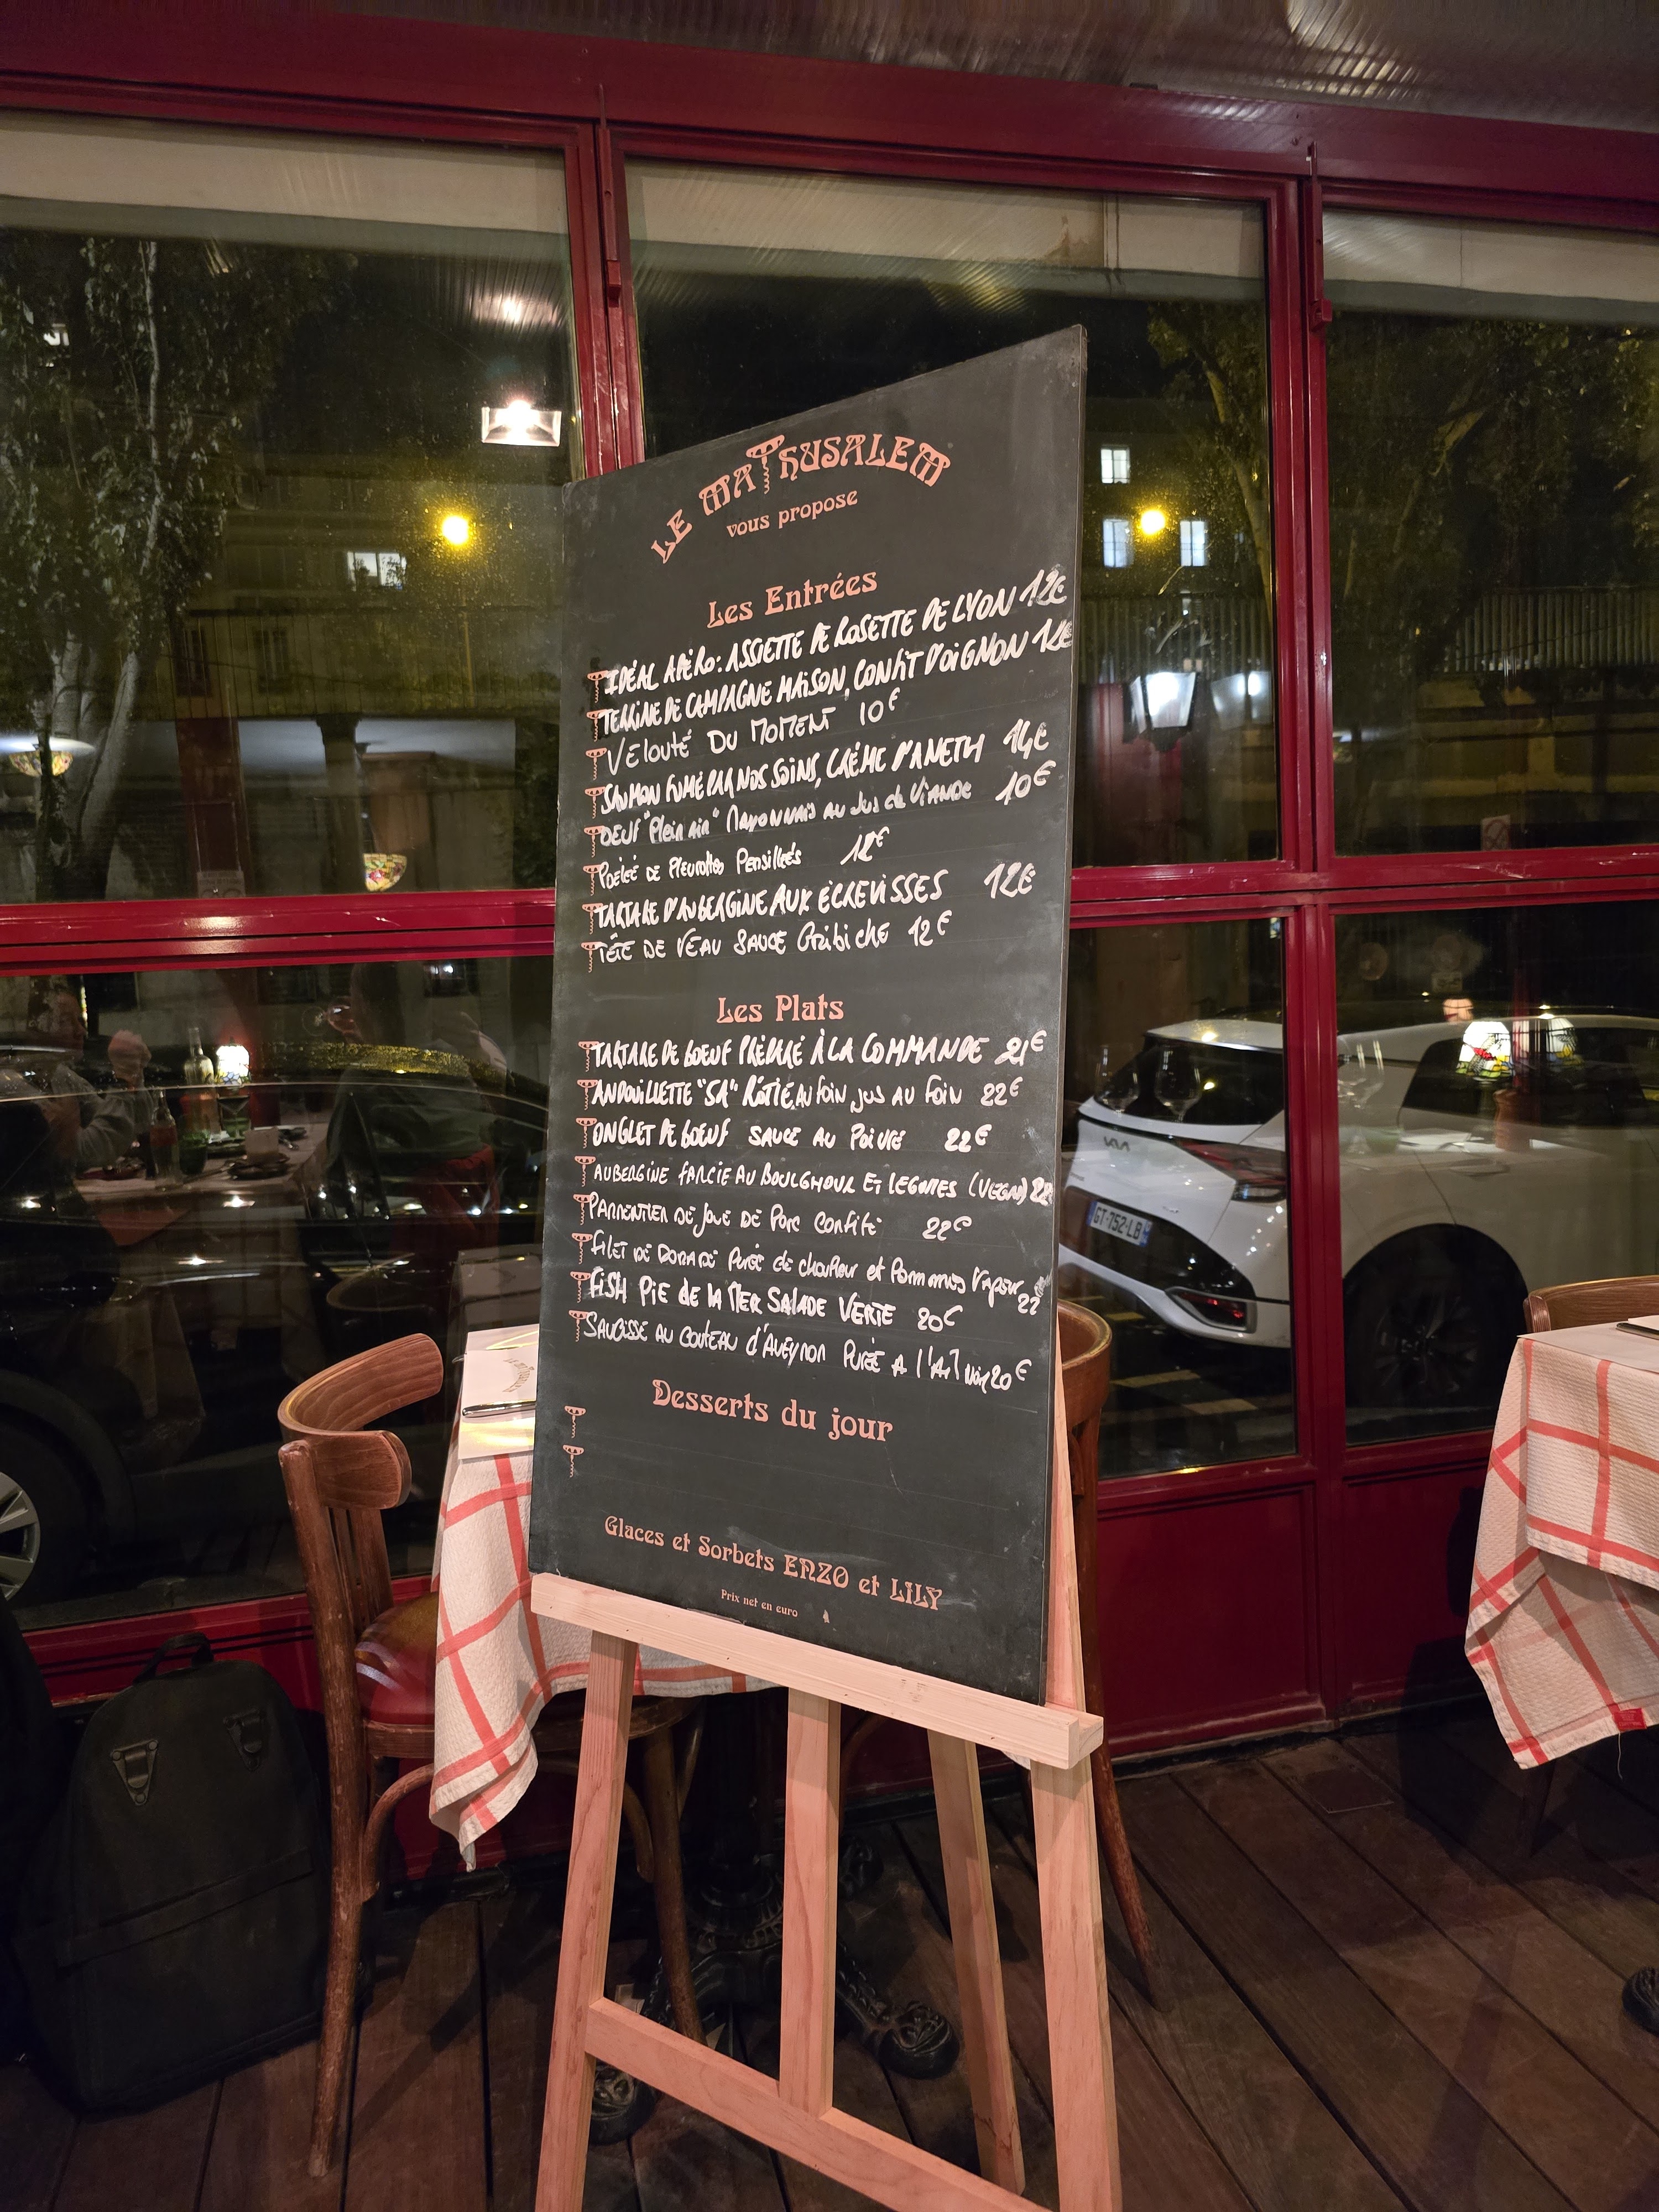 LE MATHUSALEM
vous propose
Les Entrées
IDÉAL APÉRO: ASSIETTE DE ROSETTE DE LYON 12€
TERRINE DE CAMPAGNE MAISON, CONFIT D'OIGNON 12€
VELOUTÉ DU MOMENT 10€
SAUMON FUMÉ PAR NOS SOINS, CRÈME D'ANETH 14€
OEUF "Plein air" MAYONNAIS AU Jus de VIANDE 10€
POÊLÉE DE Pleurottes Persillées 12€
TARTARE D'AUBERGINE AUX ÉCREVISSES 12€
TÊTE DE VEAU SAUCE GRIBICHE 12€
Les Plats
TARTARE DE BOEUF PRÉPARÉ À LA COMMANDE 21€
ANDOUILLETTE "5A" RÔTIE AU FOIN, JUS AU FOIN 22€
ONGLET DE BOEUF SAUCE AU POIVRE 22€
AUBERGINE FARCIE AU BOULGHOUR ET LEGUMES (VEGAN)
PARMENTIER DE JOUE DE PORC CONFITE 22€
FILET DE DORADE PURÉE de chouFleur et Pommmes Vapeur 22
FISH PIE de la MER SALADE VERTE 20€
SAUCISSE AU COUTEAU d'AVEYRON PURÉE A l'Ail Noir 20€
Desserts du jour
Glaces et Sorbets ENZO et LILY
Prix net en euro
KIA
GT-752-LB